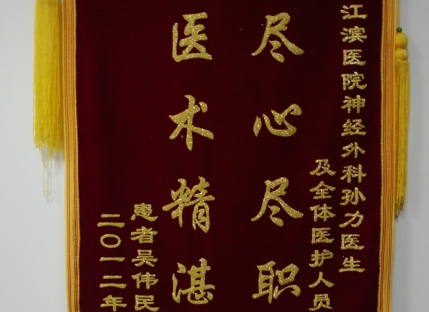 江滨医院神经外科孙力医生
及全体医护人员
尽心尽职
医术精湛
患者吴伟民
二〇一二年